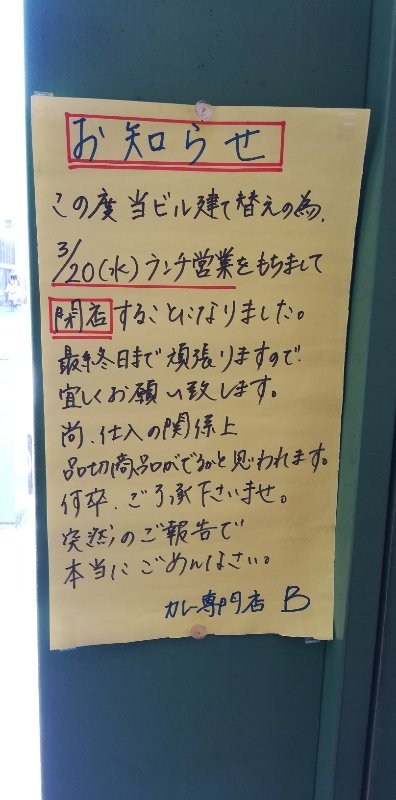 お知らせ
この度当ビル建て替えの為、
3/20(水)ランチ営業をもちまして
閉店することになりました。
最終日まで頑張りますので
宜しくお願い致します。
尚、仕入の関係上
品切商品がでるかと思われます。
何卒、ご了承下さいませ。
突然のご報告で
本当にごめんなさい。
カレー専門店 B